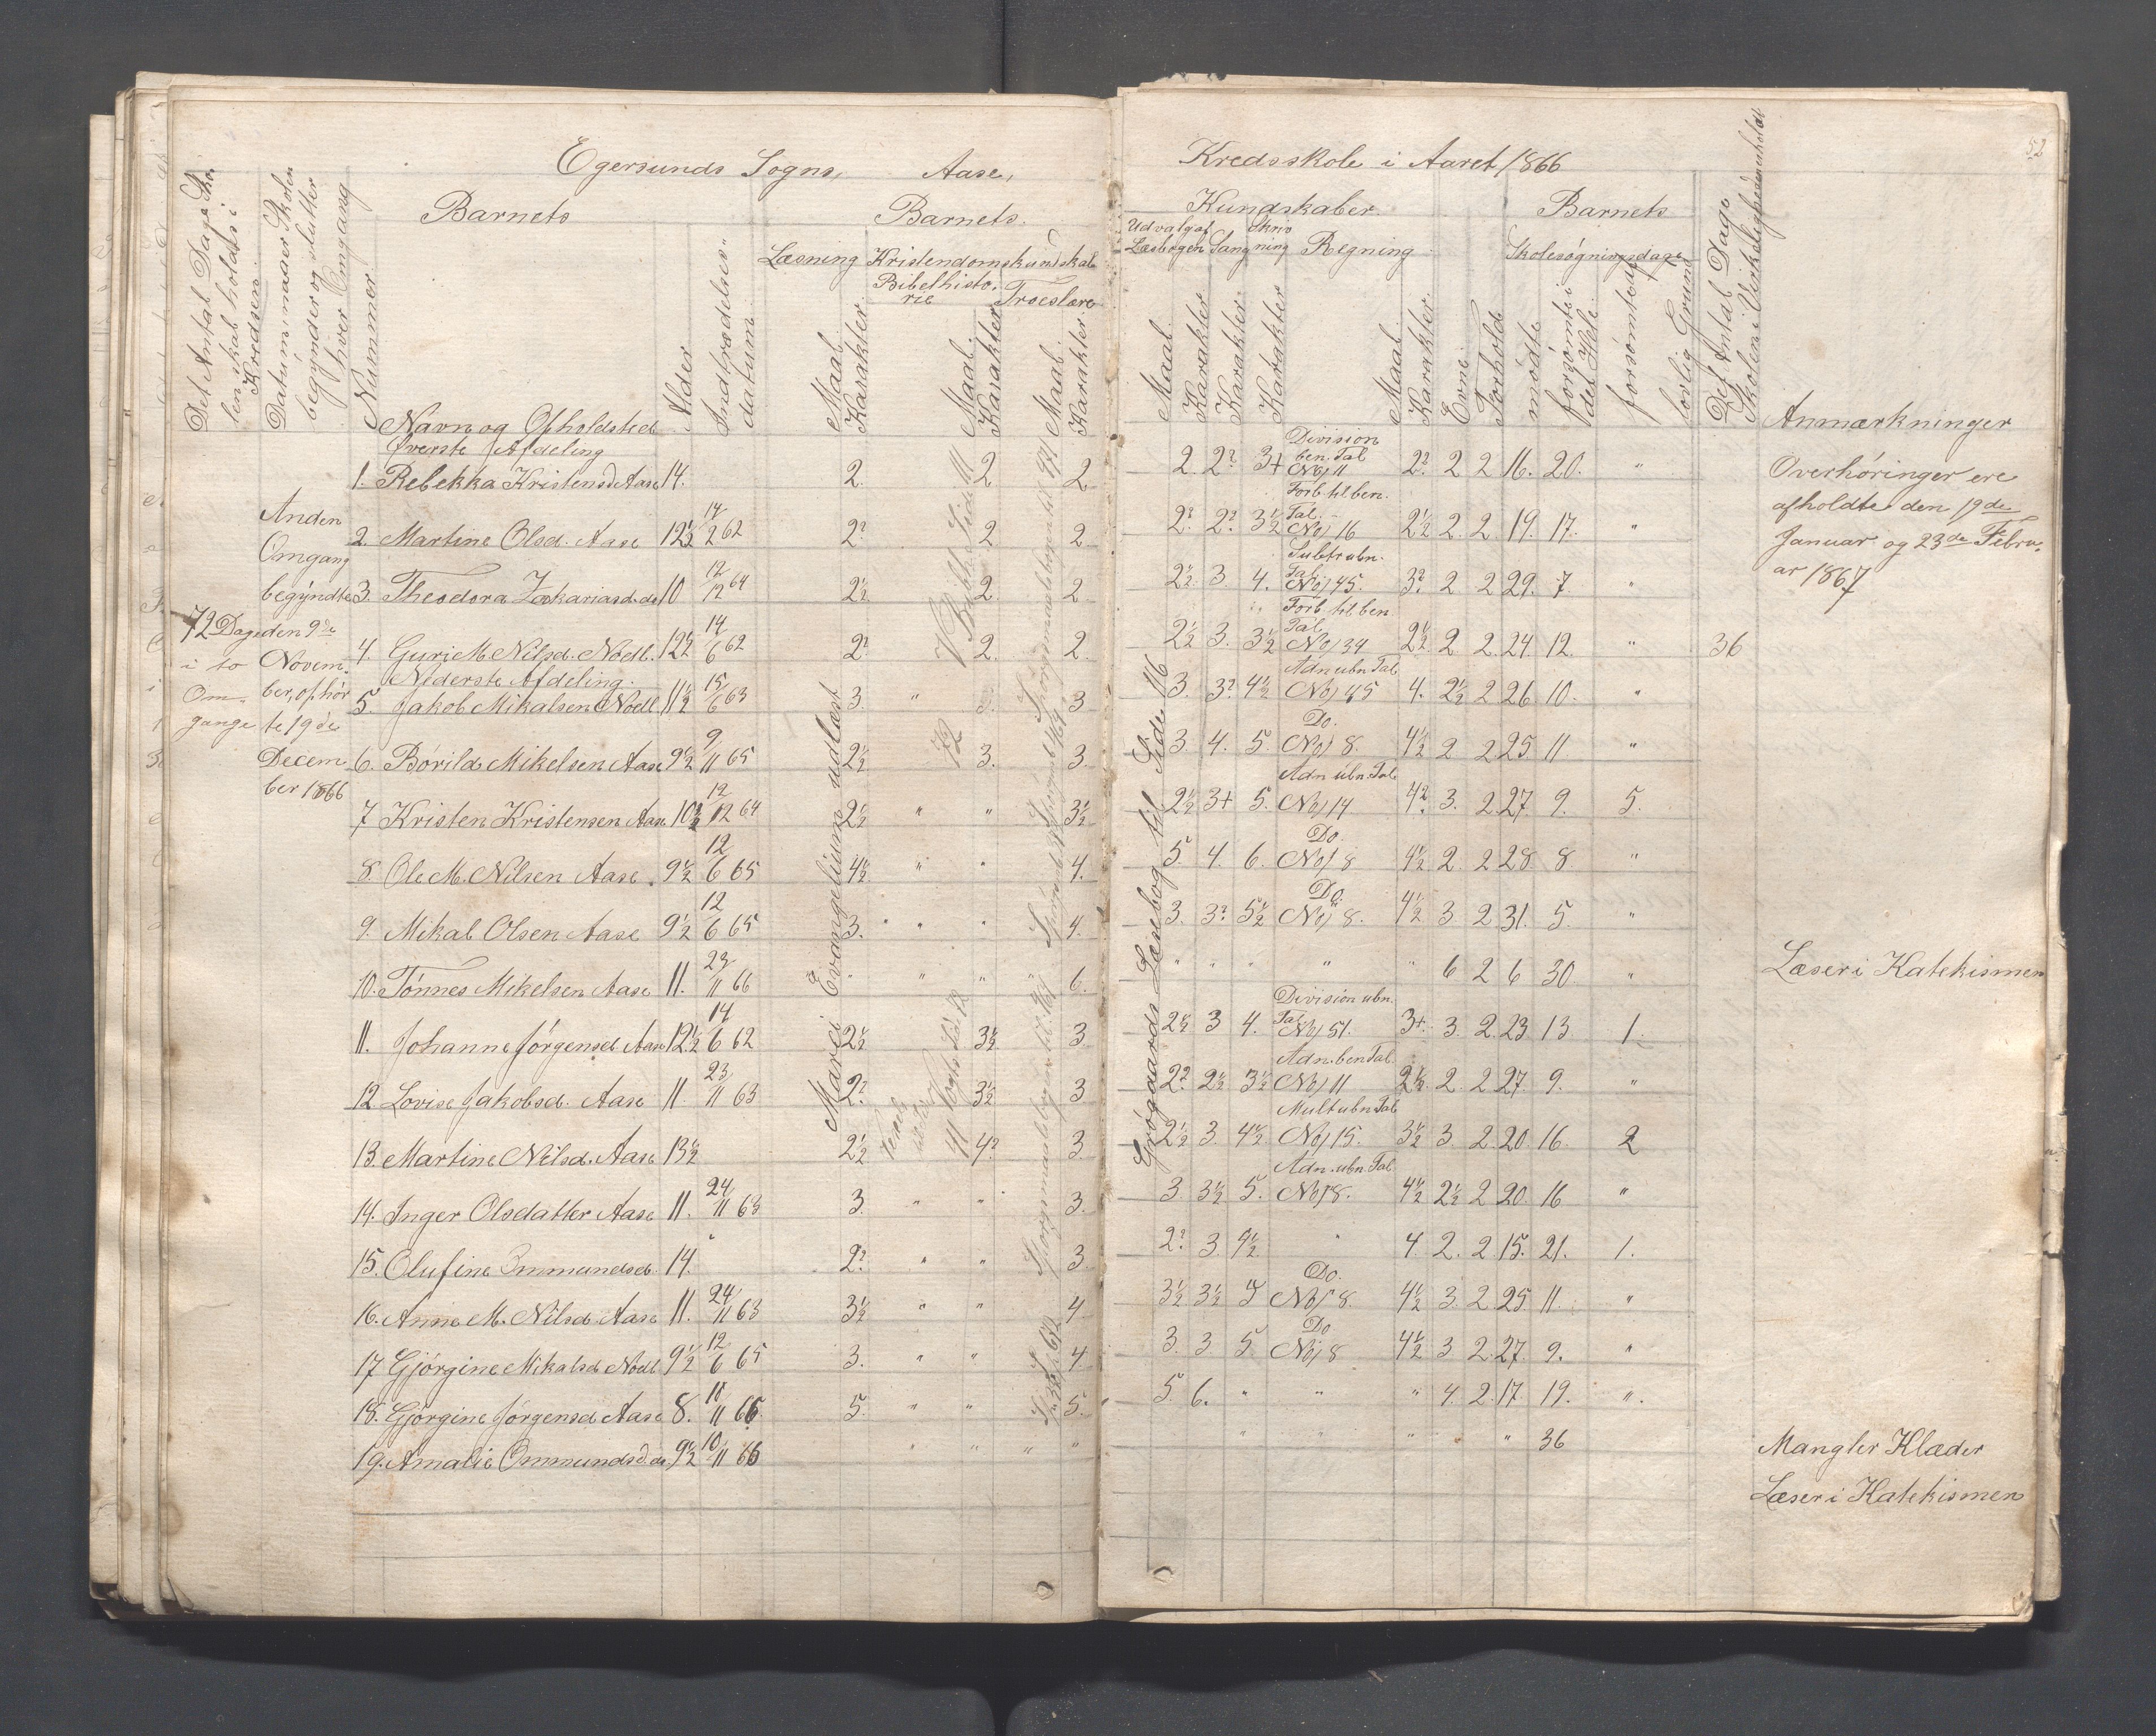 Egersunds Sogns, Aase, Kredsskole i Aaret 1866
52
Det Antal Dage Sko
len skal holdes i
Kredsen.
Datum naar Skolen
begynder og slutter
hver Omgang
Nummer
Barnets
Navn og Opholdsted
Alder
Indtrædelses
datum.
Barnets.
Læsning Kristendomskundskab
Bibelhisto,
rie
Troeslære
Maal.
Karakter.
Maal.
Karakter
Maal.
Karakter.
Kundskaber.
Udvalg af
Læsbogen
Sang
Skriv
ning
Regning
Maal.
Karakter
Karakter.
Karakter
Maal.
Karakter.
Evne
Forhold
Barnets
Skolesøgningsdage
mødte
forsømte i
det Hele
forsømte
lovlig Grund
Det Antal Dage
Skolen i Virkeligheden holdt
Anmærkninger
72 Dage
i to
Om,
gange
Anden
Omgang
begyndte
den 9de
Novem,
ber, ophør
te 19de
Decem
ber 1866
Øverste Afdeling
1. Rebekka Kristensd Aase 14. 2. 2 2
2. Martine Olsd. Aase 12½ 14/2 62 2? 2 2
3. Theodora Zakariasd. do 10 12/12 64 2½ 2. 2
4. Guri M. Nilsd. Nodl. 12½ 14/6 62 2? 2. 2.
Nederste Afdeling.
5. Jakob Mikalsen Nodl 11½ 15/6 63 3. " 3. 3
6. Børild Mikelsen Aase 9½ 9/11 65 2½ 3. 3.
7 Kristen Kristensen Aase 10½ 12/12 64 2½ " " 3½
8. Ole M. Nilsen Aase. 9½ 12/6 65 4½ " " 4.
9. Mikal Olsen Aase 9½ 12/6 65 3. " " 4.
10. Tønnes Mikelsen Aase 11. 23/11 66 " " " " 6.
11. Johanne Jørgensd Aase 12½ 14/6 62 2½ 3½ 3
12 Lovise Jakobsd. Aase 11. 23/11 63 2? 3½ 3
13. Martine Nilsd. Aase 13½ 2½ 4? 3.
14. Inger Olsdatter Aase 11. 24/11 63 3. " " 3.
15. Olufine Ommundsd. 14. 2? " " 3
16. Anne M. Nilsd Aase 11. 24/11 63 3½ " " 4
17 Gjørgine Mikalsd Nodl 9½ 12/6 65 3. " " 4.
18. Gjørgine Jørgensd Aase 8. 10/11 66. 5. " " 5.
19. Amalie Ommundsd do 9½ 10/11 66 " " " "
Marci Evangelium udlæst
Grøgaards Læsebog til Side 116
Division
ben. Tal
2 2? 3+ No 11 2? 2 2 16. 20. "
Forb til. ben.
Tal.
2? 2? 3½ No 16 2½ 2. 2 19. 17. "
Subtr ubn.
Tal
2½ 3. 4. No 45. 3? 2 2 29. 7. "
Forb til. ben
Tal
2½ 3. 3½ No 34 2½ 2 2. 24. 12. " 36
Adn ubn Tal
3. 3? 4½ No 45 4. 2½ 2 26 10. "
Do.
3. 4. 5. No 8. 4½ 2 2 25. 11 "
Adn ubn. Tal
2½ 3+ 5. No 14 4? 3. 2. 27. 9. 5.
Do.
5. 4. 6. No 8 4½ 2. 2 28 8 "
Do.
3. 3? 5½ No 8. 4½ 3 2 31. 5. "
" " " " " 6 2 6 30 "
Division ubn.
Tal
2½ 3 4. No 51. 3+. 3. 2. 23 13. 1.
Adn. ben Tal
2? 2½ 3½ No 11 2½ 2. 2 27. 9. "
Mult ubn Tal
2½ 3. 4½ No 15. 3½ 3 2. 20. 16. 2
Adn. ubn Tal
3 3½ 5. No 8. 4½ 2½ 2 20. 16 "
2? 3. 4½ " 4. 2. 2 15. 21. 1.
Do.
3½ 3½ 5 No 8. 4½ 3. 2. 25. 11. "
Do
3. 3 5. No 8 4½ 3 2. 27. 9. "
5. 6. " " " 4. 2. 17. 19. ".
" " " " " 36
Overhøringer ere
afholdte den 19de
Januar og 23de Febru,
ar 1867
Læser i Katekismen
Mangler Klæder
Læser i Katekismen